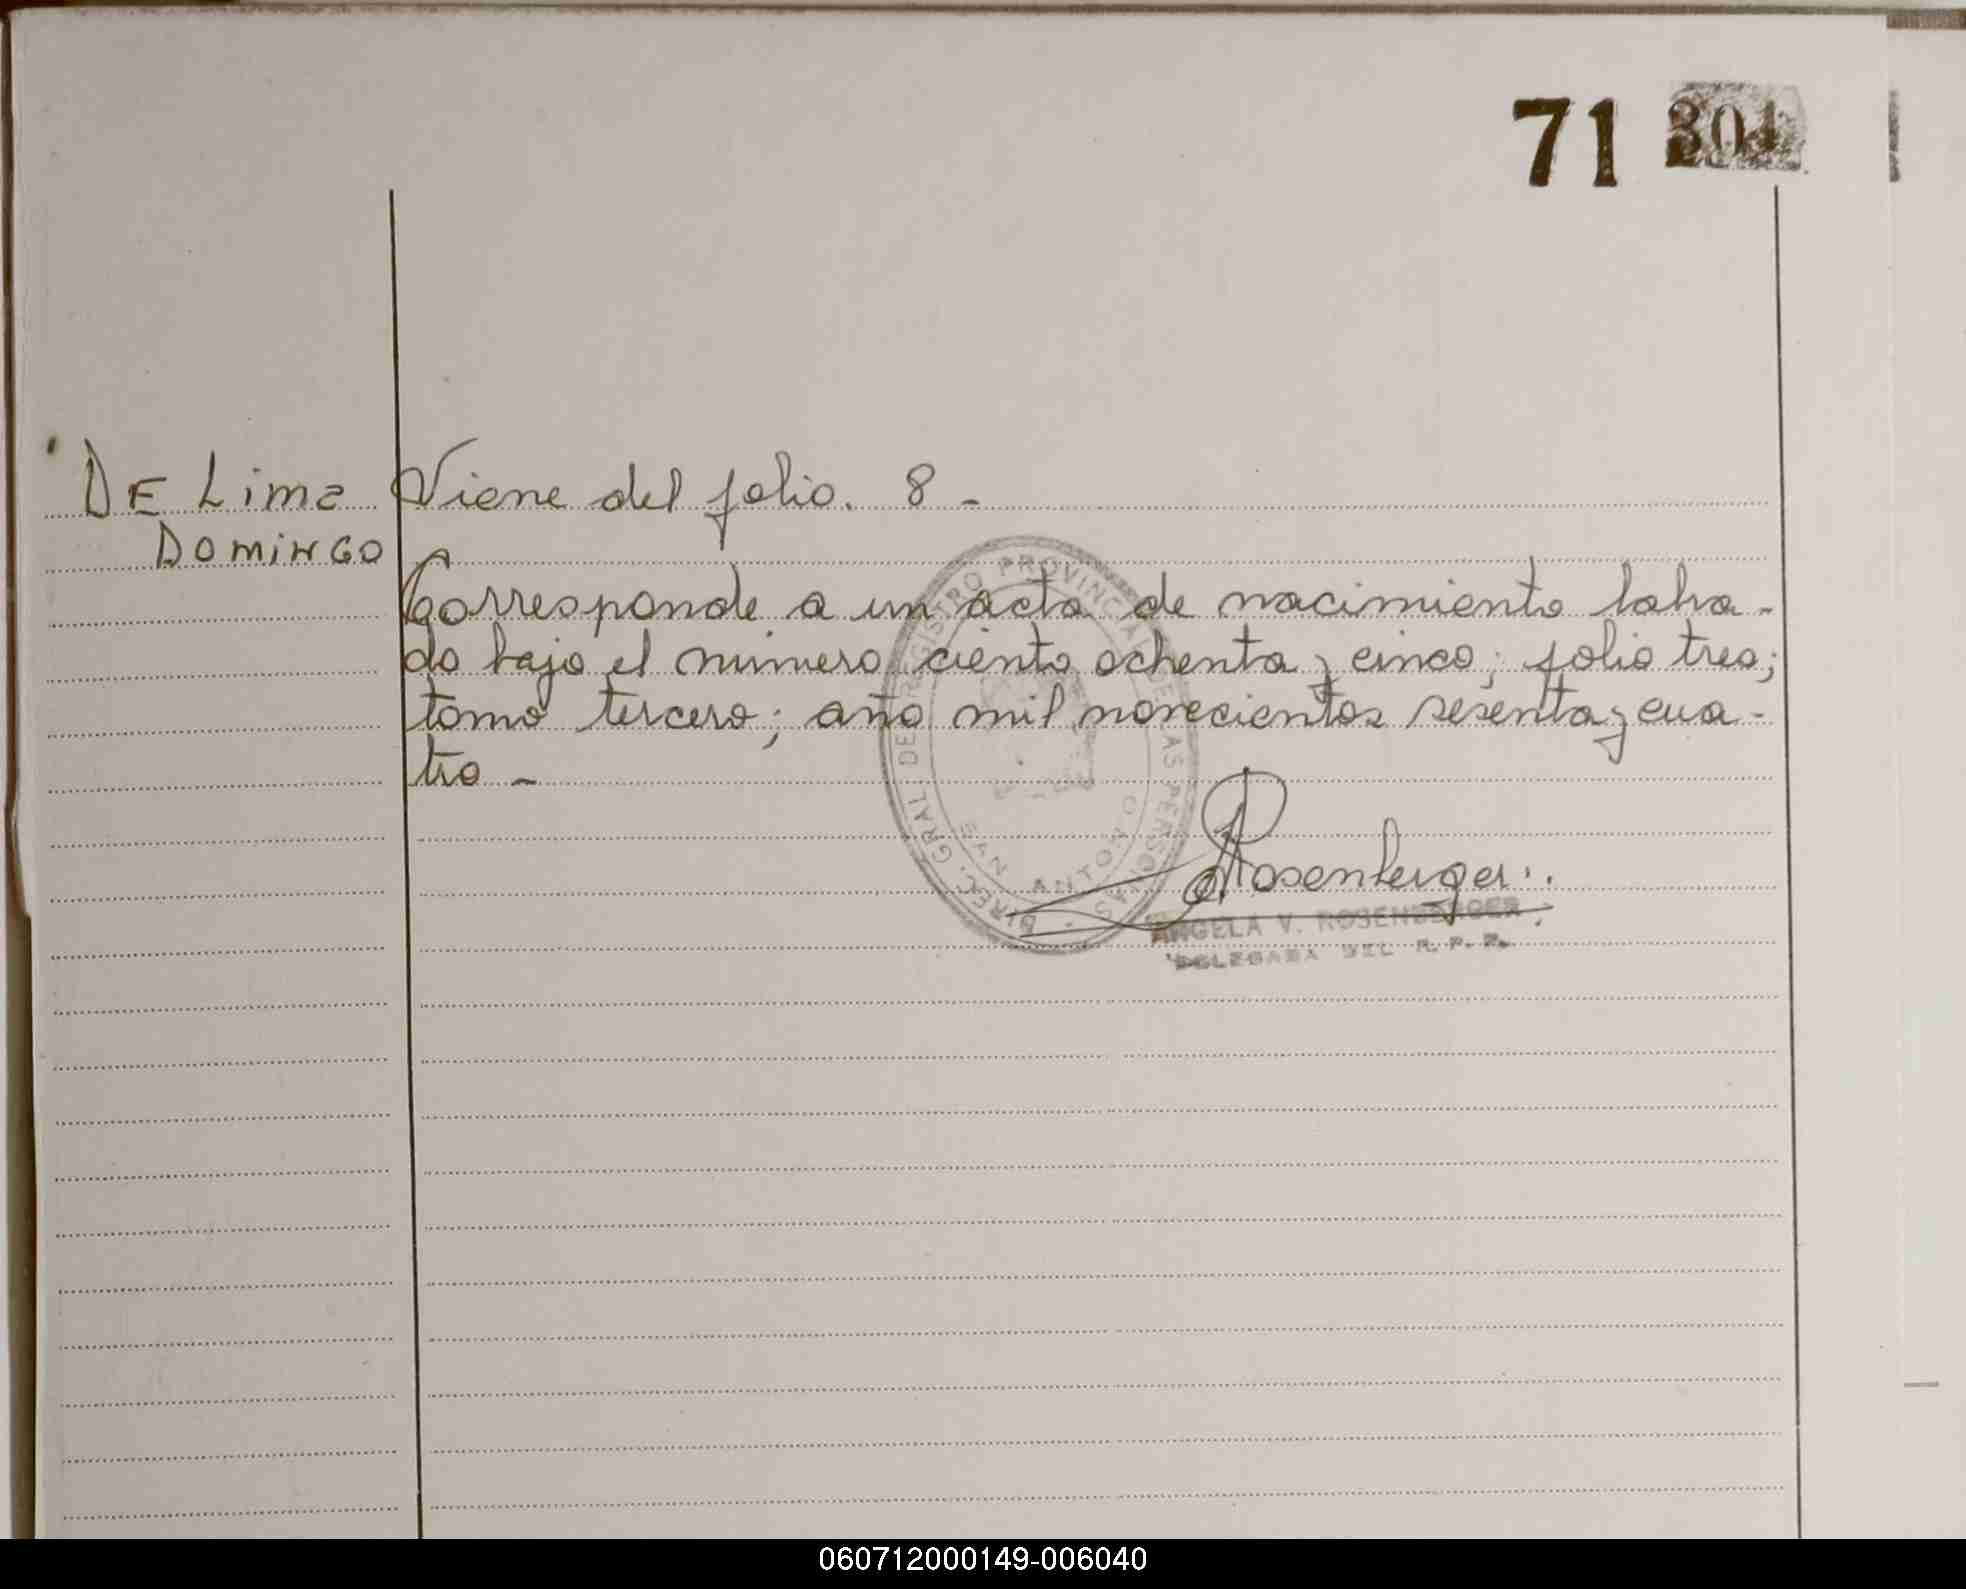 71 301
DE Lima Viene del folio. 8 -
DOMINGO
Corresponde a un acta de nacimiento labra-
do bajo el número ciento ochenta y cinco; folio tres;
tomo tercero; año mil novecientos sesenta y cua-
tro -
DIREC. GRAL DE REGISTRO PROVINCIAL DE LAS PERSONAS
SAN ANTONIO
Rosenberger
ANGELA V. ROSENBERGER
DELEGADA DEL R. P. P.
060712000149-006040